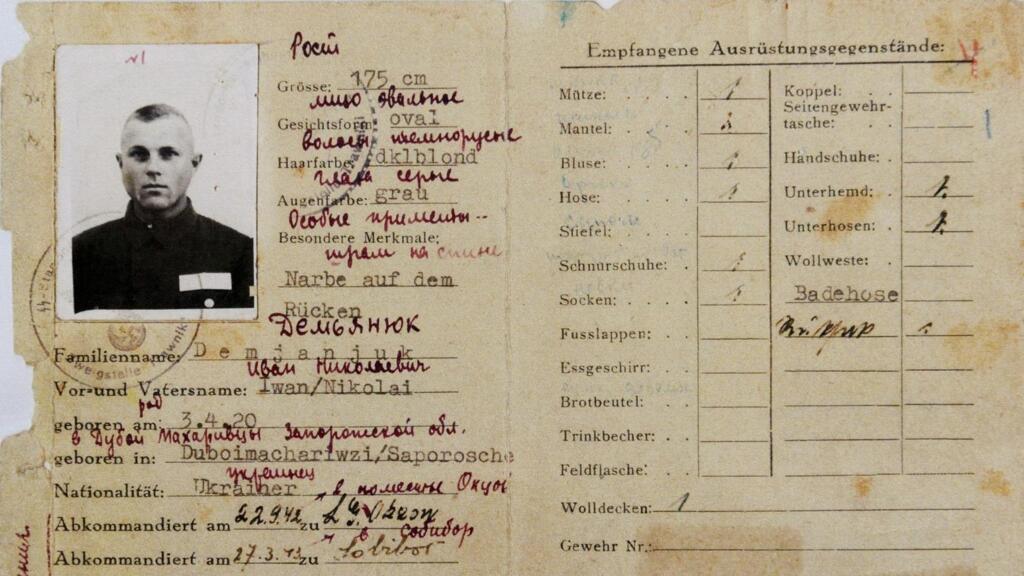 Рост
Grösse: 175 cm
лицо овальное
Gesichtsform: oval
волосы темнорусые
Haarfarbe: dklblond
глаза серые
Augenfarbe: grau
Особые приметы--
Besondere Merkmale:
шрам на спине
Narbe auf dem
Rücken
Демьянюк
Familienname: Demjanjuk
Иван Николаевич
Vor-und Vatersname: Iwan/Nikolai
род
geboren am: 3.4.20
в Дубой Махаривцы Запорожской обл.
geboren in: Duboimachariwzi/Saporosche
украинец
Nationalität: Ukrainer
в поместье Окцов
Abkommandiert am 22.9.42 zu L.G. Okzow
в Собибор
Abkommandiert am 27.3.43 zu Sobibor
Empfangene Ausrüstungsgegenstände:
Mütze: 1
Mantel: 1
Bluse: 1
Hose: 1
Stiefel:
Schnürschuhe: 1
Socken: 1
Fusslappen:
Essgeschirr:
Brotbeutel:
Trinkbecher:
Feldflasche:
Koppel:
Seitengewehr-
tasche:
Handschuhe:
Unterhemd: 1.
Unterhosen: 1.
Wollweste:
Badehose
Wolldecken: 1
Gewehr Nr.: